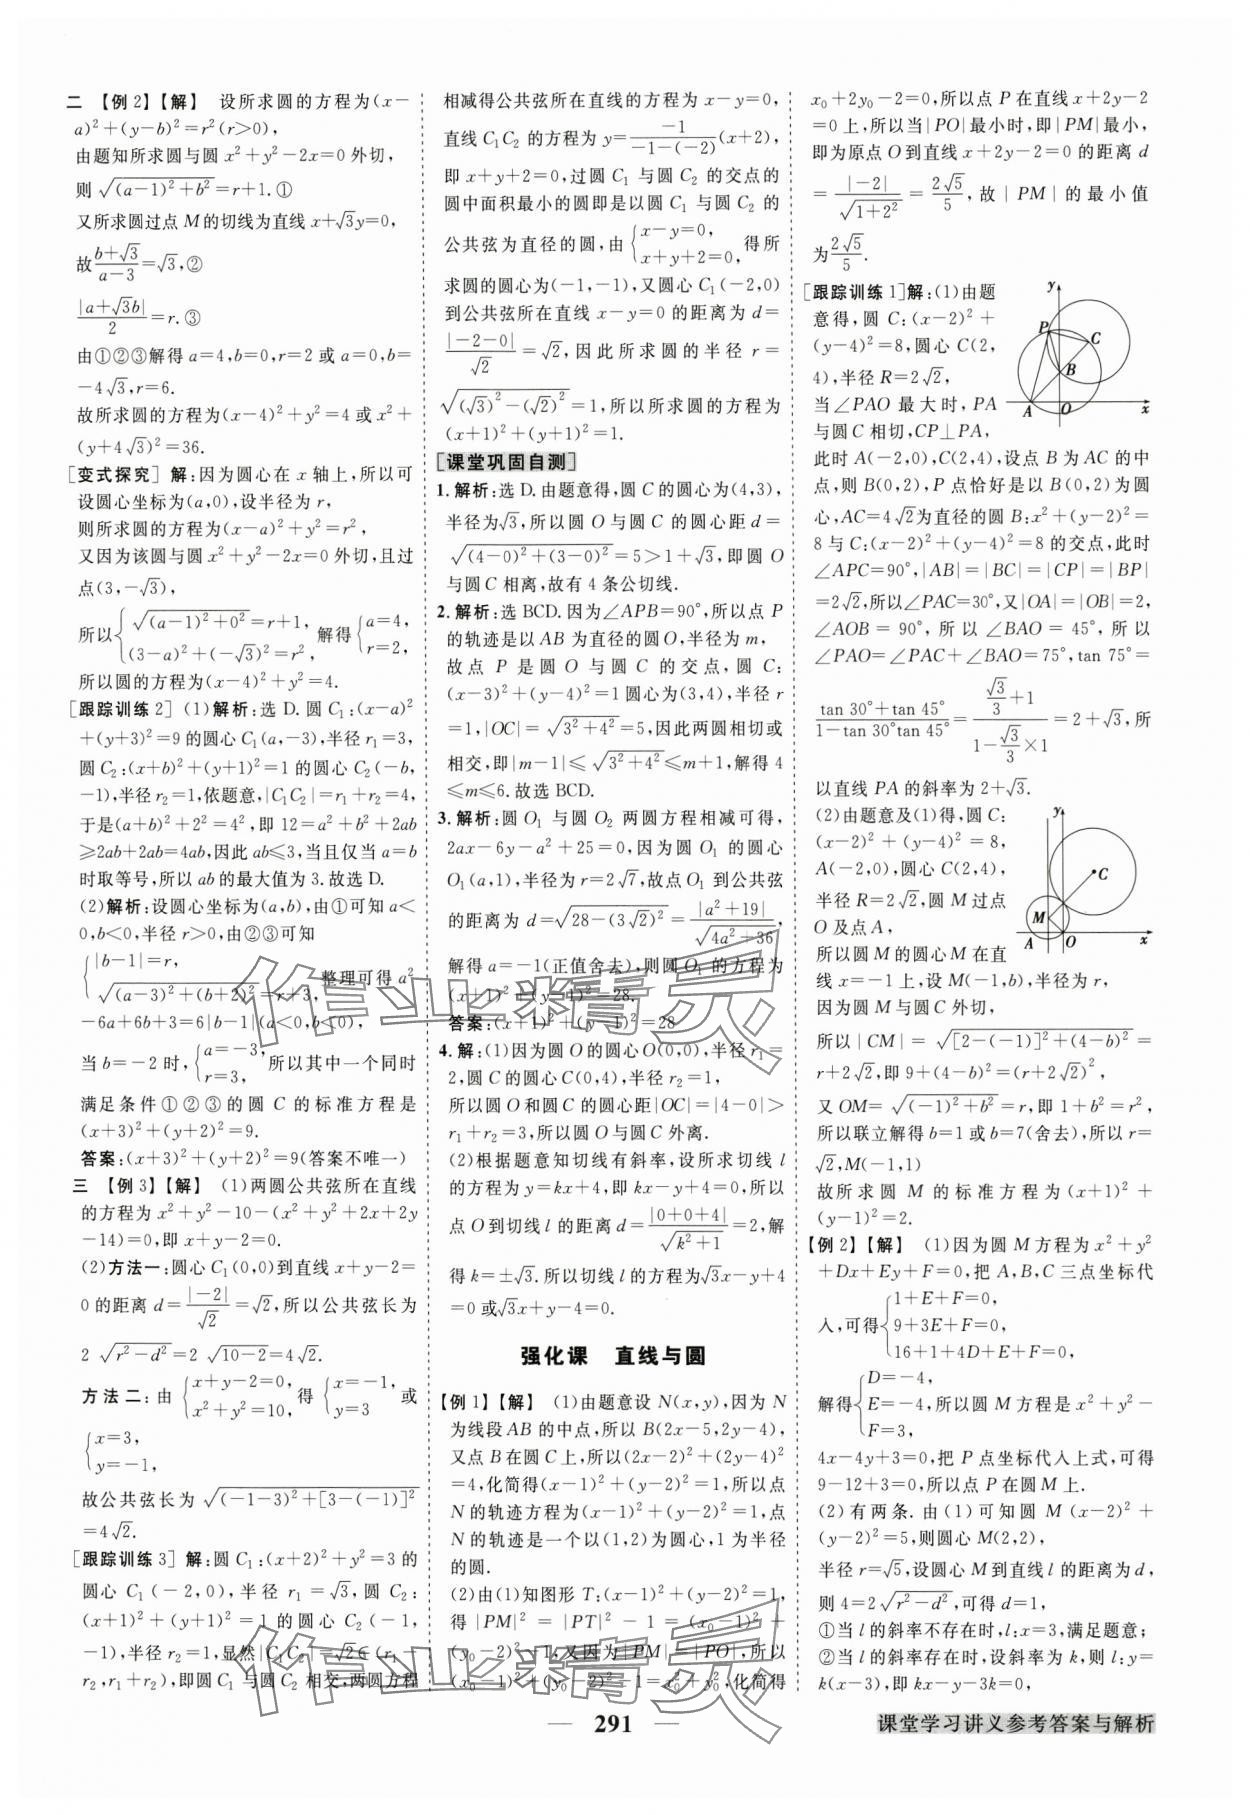 二 【例2】【解】 设所求圆的方程为(x-
a)²+(y-b)²=r²(r>0),
由题知所求圆与圆 x²+y²-2x=0 外切,
则 √((a-1)²+b²)=r+1. ①
又所求圆过点 M 的切线为直线 x+√3y=0,
故(b+√3)/(a-3)=√3,②
|a+√3b|/2=r. ③
由①②③解得 a=4,b=0,r=2 或 a=0,b=
-4√3,r=6.
故所求圆的方程为(x-4)²+y²=4 或 x²+
(y+4√3)²=36.
[变式探究] 解:因为圆心在 x 轴上,所以可
设圆心坐标为(a,0),设半径为 r,
则所求圆的方程为(x-a)²+y²=r²,
又因为该圆与圆 x²+y²-2x=0 外切,且过
点(3,-√3),
所以{√((a-1)²+0²)=r+1, (3-a)²+(-√3)²=r², 解得{a=4, r=2,
所以圆的方程为(x-4)²+y²=4.
[跟踪训练2] (1)解析:选 D. 圆 C₁:(x-a)²
+(y+3)²=9 的圆心 C₁(a,-3),半径 r₁=3,
圆 C₂:(x+b)²+(y+1)²=1 的圆心 C₂(-b,
-1),半径 r₂=1,依题意,|C₁C₂|=r₁+r₂=4,
于是(a+b)²+2²=4²,即 12=a²+b²+2ab
≥2ab+2ab=4ab,因此 ab≤3,当且仅当 a=b
时取等号,所以 ab 的最大值为 3. 故选 D.
(2)解析:设圆心坐标为(a,b),由①可知 a<
0,b<0,半径 r>0,由②③可知
{|b-1|=r, √((a-3)²+(b+2)²)=r+3, 整理可得 a²
-6a+6b+3=6|b-1|(a<0,b<0),
当 b=-2 时,{a=-3, r=3, 所以其中一个同时
满足条件①②③的圆 C 的标准方程是
(x+3)²+(y+2)²=9.
答案:(x+3)²+(y+2)²=9(答案不唯一)
三 【例3】【解】 (1)两圆公共弦所在直线
的方程为 x²+y²-10-(x²+y²+2x+2y
-14)=0,即 x+y-2=0.
(2)方法一:圆心 C₁(0,0)到直线 x+y-2=
0 的距离 d=|-2|/√2=√2,所以公共弦长为
2√(r²-d²)=2√(10-2)=4√2.
方法二:由{x+y-2=0, x²+y²=10, 得{x=-1, y=3 或
{x=3, y=-1,
故公共弦长为 √((-1-3)²+[3-(-1)]²)
=4√2.
[跟踪训练3] 解:圆 C₁:(x+2)²+y²=3 的
圆心 C₁(-2,0),半径 r₁=√3,圆 C₂:
(x+1)²+(y+1)²=1 的圆心 C₂(-1,
-1),半径 r₂=1,显然|C₁C₂|=√2∈(r₁-
r₂,r₁+r₂),即圆 C₁ 与圆 C₂ 相交,两圆方程
相减得公共弦所在直线的方程为 x-y=0,
直线 C₁C₂ 的方程为 y=-1/(-1-(-2))(x+2),
即 x+y+2=0,过圆 C₁ 与圆 C₂ 的交点的
圆中面积最小的圆即是以圆 C₁ 与圆 C₂ 的
公共弦为直径的圆,由{x-y=0, x+y+2=0, 得所
求圆的圆心为(-1,-1),又圆心 C₁(-2,0)
到公共弦所在直线 x-y=0 的距离为 d=
|-2-0|/√2=√2,因此所求圆的半径 r=
√((√3)²-(√2)²)=1,所以所求圆的方程为
(x+1)²+(y+1)²=1.
[课堂巩固自测]
1. 解析:选 D. 由题意得,圆 C 的圆心为(4,3),
半径为√3,所以圆 O 与圆 C 的圆心距 d=
√((4-0)²+(3-0)²)=5>1+√3,即圆 O
与圆 C 相离,故有 4 条公切线.
2. 解析:选 BCD. 因为∠APB=90°,所以点 P
的轨迹是以 AB 为直径的圆 O,半径为 m,
故点 P 是圆 O 与圆 C 的交点,圆 C:
(x-3)²+(y-4)²=1 圆心为(3,4),半径 r
=1,|OC|=√(3²+4²)=5,因此两圆相切或
相交,即|m-1|≤√(3²+4²)≤m+1,解得 4
≤m≤6. 故选 BCD.
3. 解析:圆 O₁ 与圆 O₂ 两圆方程相减可得,
2ax-6y-a²+25=0,因为圆 O₁ 的圆心
O₁(a,1),半径为 r=2√7,故点 O₁ 到公共弦
的距离为 d=√(28-(3√2)²)=|a²+19|/√(4a²+36)
解得 a=-1(正值舍去),则圆 O₁ 的方程为
(x+1)²+(y-1)²=28.
答案:(x+1)²+(y-1)²=28
4. 解:(1)因为圆 O 的圆心 O(0,0),半径 r₁=
2,圆 C 的圆心 C(0,4),半径 r₂=1,
所以圆 O 和圆 C 的圆心距|OC|=|4-0|>
r₁+r₂=3,所以圆 O 与圆 C 外离.
(2)根据题意知切线有斜率,设所求切线 l
的方程为 y=kx+4,即 kx-y+4=0,所以
点 O 到切线 l 的距离 d=|0+0+4|/√(k²+1)=2,解
得 k=±√3. 所以切线 l 的方程为√3x-y+4
=0 或√3x+y-4=0.
强化课 直线与圆
【例1】【解】 (1)由题意设 N(x,y),因为 N
为线段 AB 的中点,所以 B(2x-5,2y-4),
又点 B 在圆 C 上,所以(2x-2)²+(2y-4)²
=4,化简得(x-1)²+(y-2)²=1,所以点
N 的轨迹方程为(x-1)²+(y-2)²=1,点
N 的轨迹是一个以(1,2)为圆心,1 为半径
的圆.
(2)由(1)知图形 T:(x-1)²+(y-2)²=1,
得|PM|²=|PT|²-1=(x₀-1)²+
(y₀-2)²-1,又因为|PM|=|PO|,所以
(x₀-1)²+(y₀-2)²-1=x₀²+y₀²,化简得
x₀+2y₀-2=0,所以点 P 在直线 x+2y-2
=0 上,所以当|PO|最小时,即|PM|最小,
即为原点 O 到直线 x+2y-2=0 的距离 d
=|-2|/√(1+2²)=2√5/5,故|PM|的最小值
为2√5/5.
[跟踪训练1]解:(1)由题
意得,圆 C:(x-2)²+
(y-4)²=8,圆心 C(2,
4),半径 R=2√2,
当∠PAO 最大时,PA
与圆 C 相切,CP⊥PA,
y
P
C
B
A
O
x
此时 A(-2,0),C(2,4),设点 B 为 AC 的中
点,则 B(0,2),P 点恰好是以 B(0,2)为圆
心,AC=4√2为直径的圆 B:x²+(y-2)²=
8 与 C:(x-2)²+(y-4)²=8 的交点,此时
∠APC=90°,|AB|=|BC|=|CP|=|BP|
=2√2,所以∠PAC=30°,又|OA|=|OB|=2,
∠AOB=90°,所以∠BAO=45°,所以
∠PAO=∠PAC+∠BAO=75°,tan 75°=
(tan 30°+tan 45°)/(1-tan 30°tan 45°)=(√3/3+1)/(1-√3/3×1)=2+√3,所
以直线 PA 的斜率为 2+√3.
(2)由题意及(1)得,圆 C:
(x-2)²+(y-4)²=8,
A(-2,0),圆心 C(2,4),
半径 R=2√2,圆 M 过点
O 及点 A,
所以圆 M 的圆心 M 在直
y
C
M
A
O
x
线 x=-1 上,设 M(-1,b),半径为 r,
因为圆 M 与圆 C 外切,
所以|CM|=√([2-(-1)]²+(4-b)²)=
r+2√2,即 9+(4-b)²=(r+2√2)²,
又 OM=√((-1)²+b²)=r,即 1+b²=r²,
所以联立解得 b=1 或 b=7(舍去),所以 r=
√2,M(-1,1)
故所求圆 M 的标准方程为(x+1)²+
(y-1)²=2.
【例2】【解】 (1)因为圆 M 方程为 x²+y²
+Dx+Ey+F=0,把 A,B,C 三点坐标代
入,可得{1+E+F=0, 9+3E+F=0, 16+1+4D+E+F=0,
解得{D=-4, E=-4, F=3, 所以圆 M 方程是 x²+y²-
4x-4y+3=0,把 P 点坐标代入上式,可得
9-12+3=0,所以点 P 在圆 M 上.
(2)有两条. 由(1)可知圆 M (x-2)²+
(y-2)²=5,则圆心 M(2,2),
半径 r=√5,设圆心 M 到直线 l 的距离为 d,
则 4=2√(r²-d²),可得 d=1,
①当 l 的斜率不存在时,l:x=3,满足题意;
②当 l 的斜率存在时,设斜率为 k,则 l:y=
k(x-3),即 kx-y-3k=0,
作业精灵
作业精灵
— 291 —
课堂学习讲义参考答案与解析